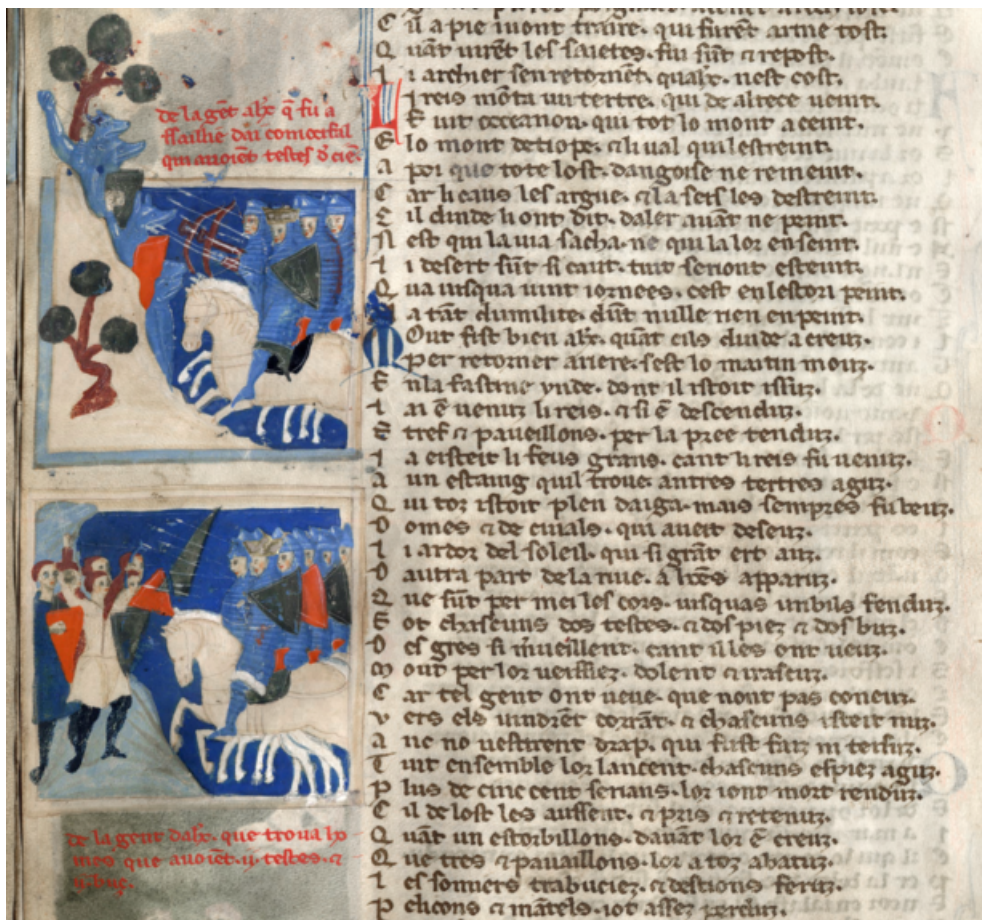 de la gẽt alx̃ q̃ fu a
ssailhe
qui auoiẽt testes d ciẽ.
C il a pie iuont traire. qui furẽt arme tost.
Q uãt uirẽt les saietes. fui sũt & repost.
L i archier sen retornẽt. qualx̃. nest cost.
L i reis mõta un tertre. qui de altece uenit.
E uit occeanon. qui tot lo mont aceint.
E lo mont detiope. & li ual qui lestreint.
a poi que tote lost. dangoise ne remeint.
C ar li caus les argue. & la seis les destreint.
C il dinde li ont dit. daler auãt ne peint.
N est qui la uia sacha. ne qui la lor enseint.
L i desert sũt si caut. tuit seriont esteint.
Q ua iusqua uint iornees. cest en lestori peint.
a tãt dumilite. dũt nulle rien en peint.
M Out fist bien alx̃. quãt cils dinde a creuz.
Per retorner ariere. sest lo matin mouz.
E n la fastine ynde. dont il istoit issuz.
L ai ẽ uenuz li reis. & si ẽ descenduz.
E tref & paueillons. per la pree tenduz.
L a eisteit li feus grans. cant li reis fu uenuz.
a un estaing quil troue. antres tertres aguz.
Q ui toz istoit plen daiga. mais sempres fu beuz.
D omes & de cuials. qui aueit desouz.
L i ardoz del soleil. qui si grãt ert auz.
D autra part de la riue. a lrẽs apparuz.
Q ue sũt per mei les cors. iusquas unbils fenduz.
E ot chascuns dos testes. & dos piez & dos buz.
D es gres si m̃ueillent. cant illes ont ueuz.
M out per loz ueissiez. dolent & irascuz.
C ar tel gent ont ueue. que nont pas coneuz.
V ers els uindrẽt corãt. & chascuns isteit nuz.
a nc no uestirent drap. qui fust faiz ni teisuz.
T uit ensemble loz lancent. chascuns espiez aguz.
P lus de cinc cent serians. loz iont mort renduz.
C il de lost les aussent. & pris & retenuz.
Q uãt un estorbillons. dauãt loz ẽ creuz.
Q ue tres & pauaillons. loz a toz abatuz.
L es somiers trabuciez. & destions feruz.
P elicons & mãtels. iot assez perduz.
de la gent dalx̃. que troua lx
mes que auoiẽt. ii. testes. &